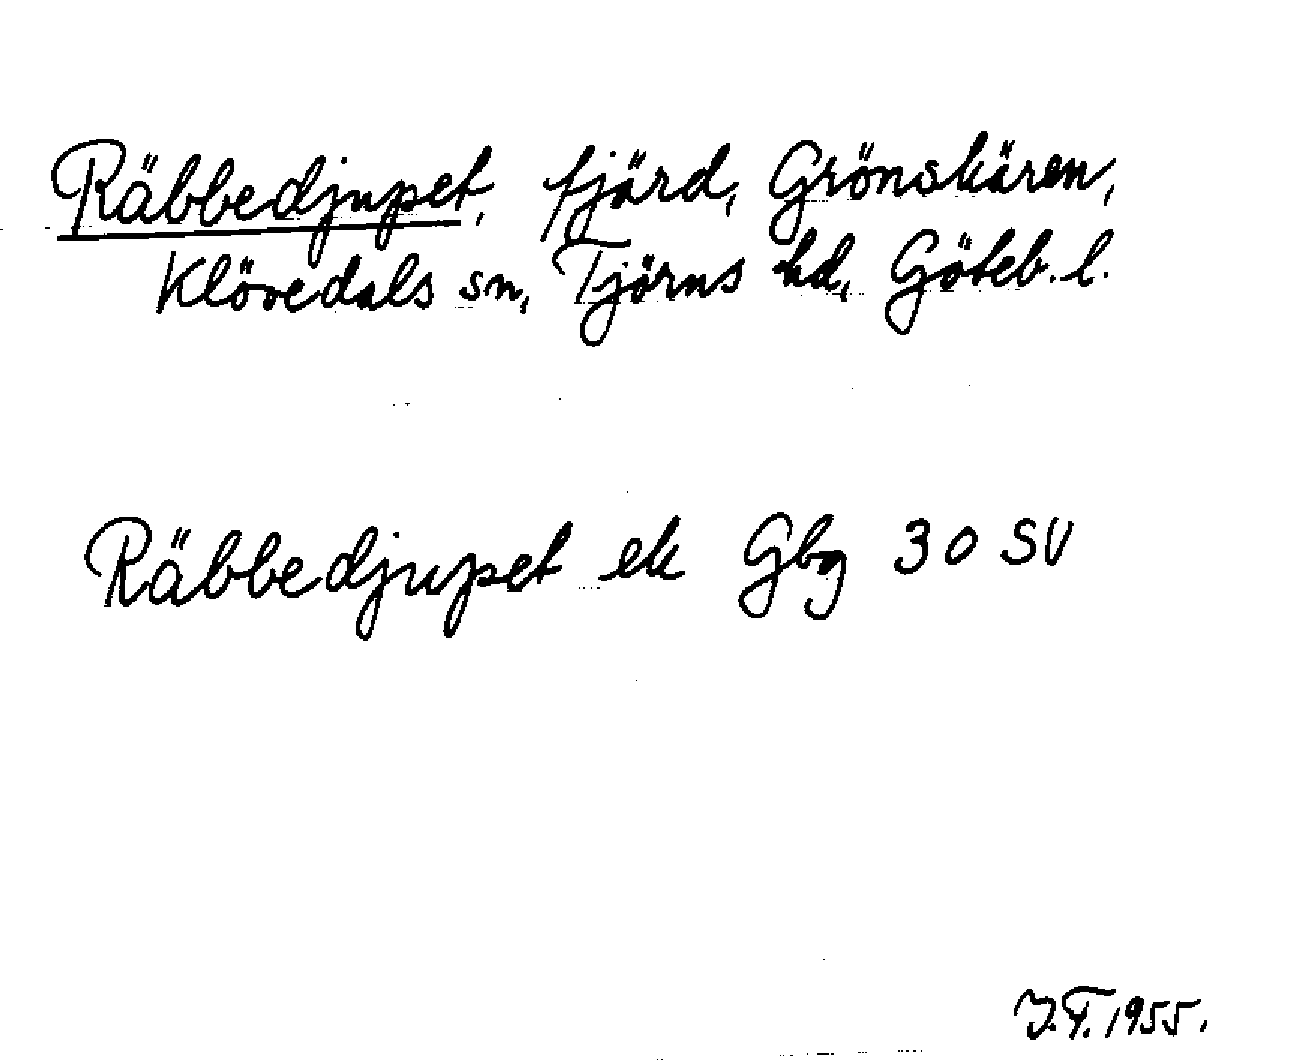 Räbbedjupet, fjärd, Grönskären,
Klövedals sn, Tjörns hd, Göteb. l.
Räbbedjupet ek Gbg 30 SV
J.T. 1955.